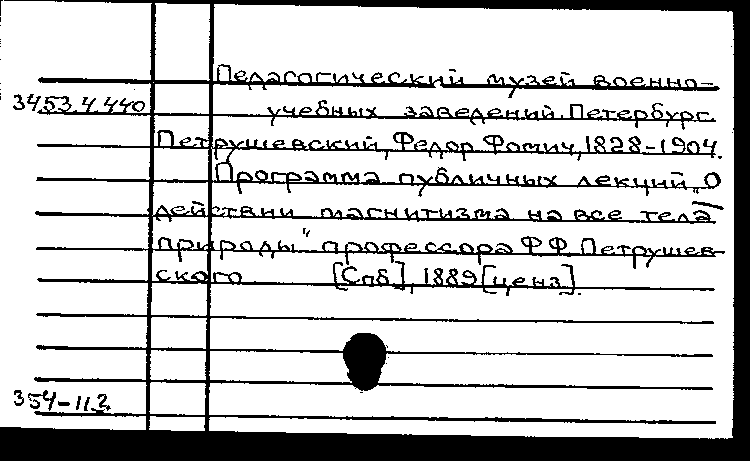 Педагогический музей военно-
3453.4.440
учебных заведений. Петербург.
Петрушевский, Федор Фомич, 1828-1904.
Программа публичных лекций „О
действии магнитизма на все тела
природы" профессора Ф.Ф. Петрушев-
ского [Спб], 1889 [ценз].
354-112